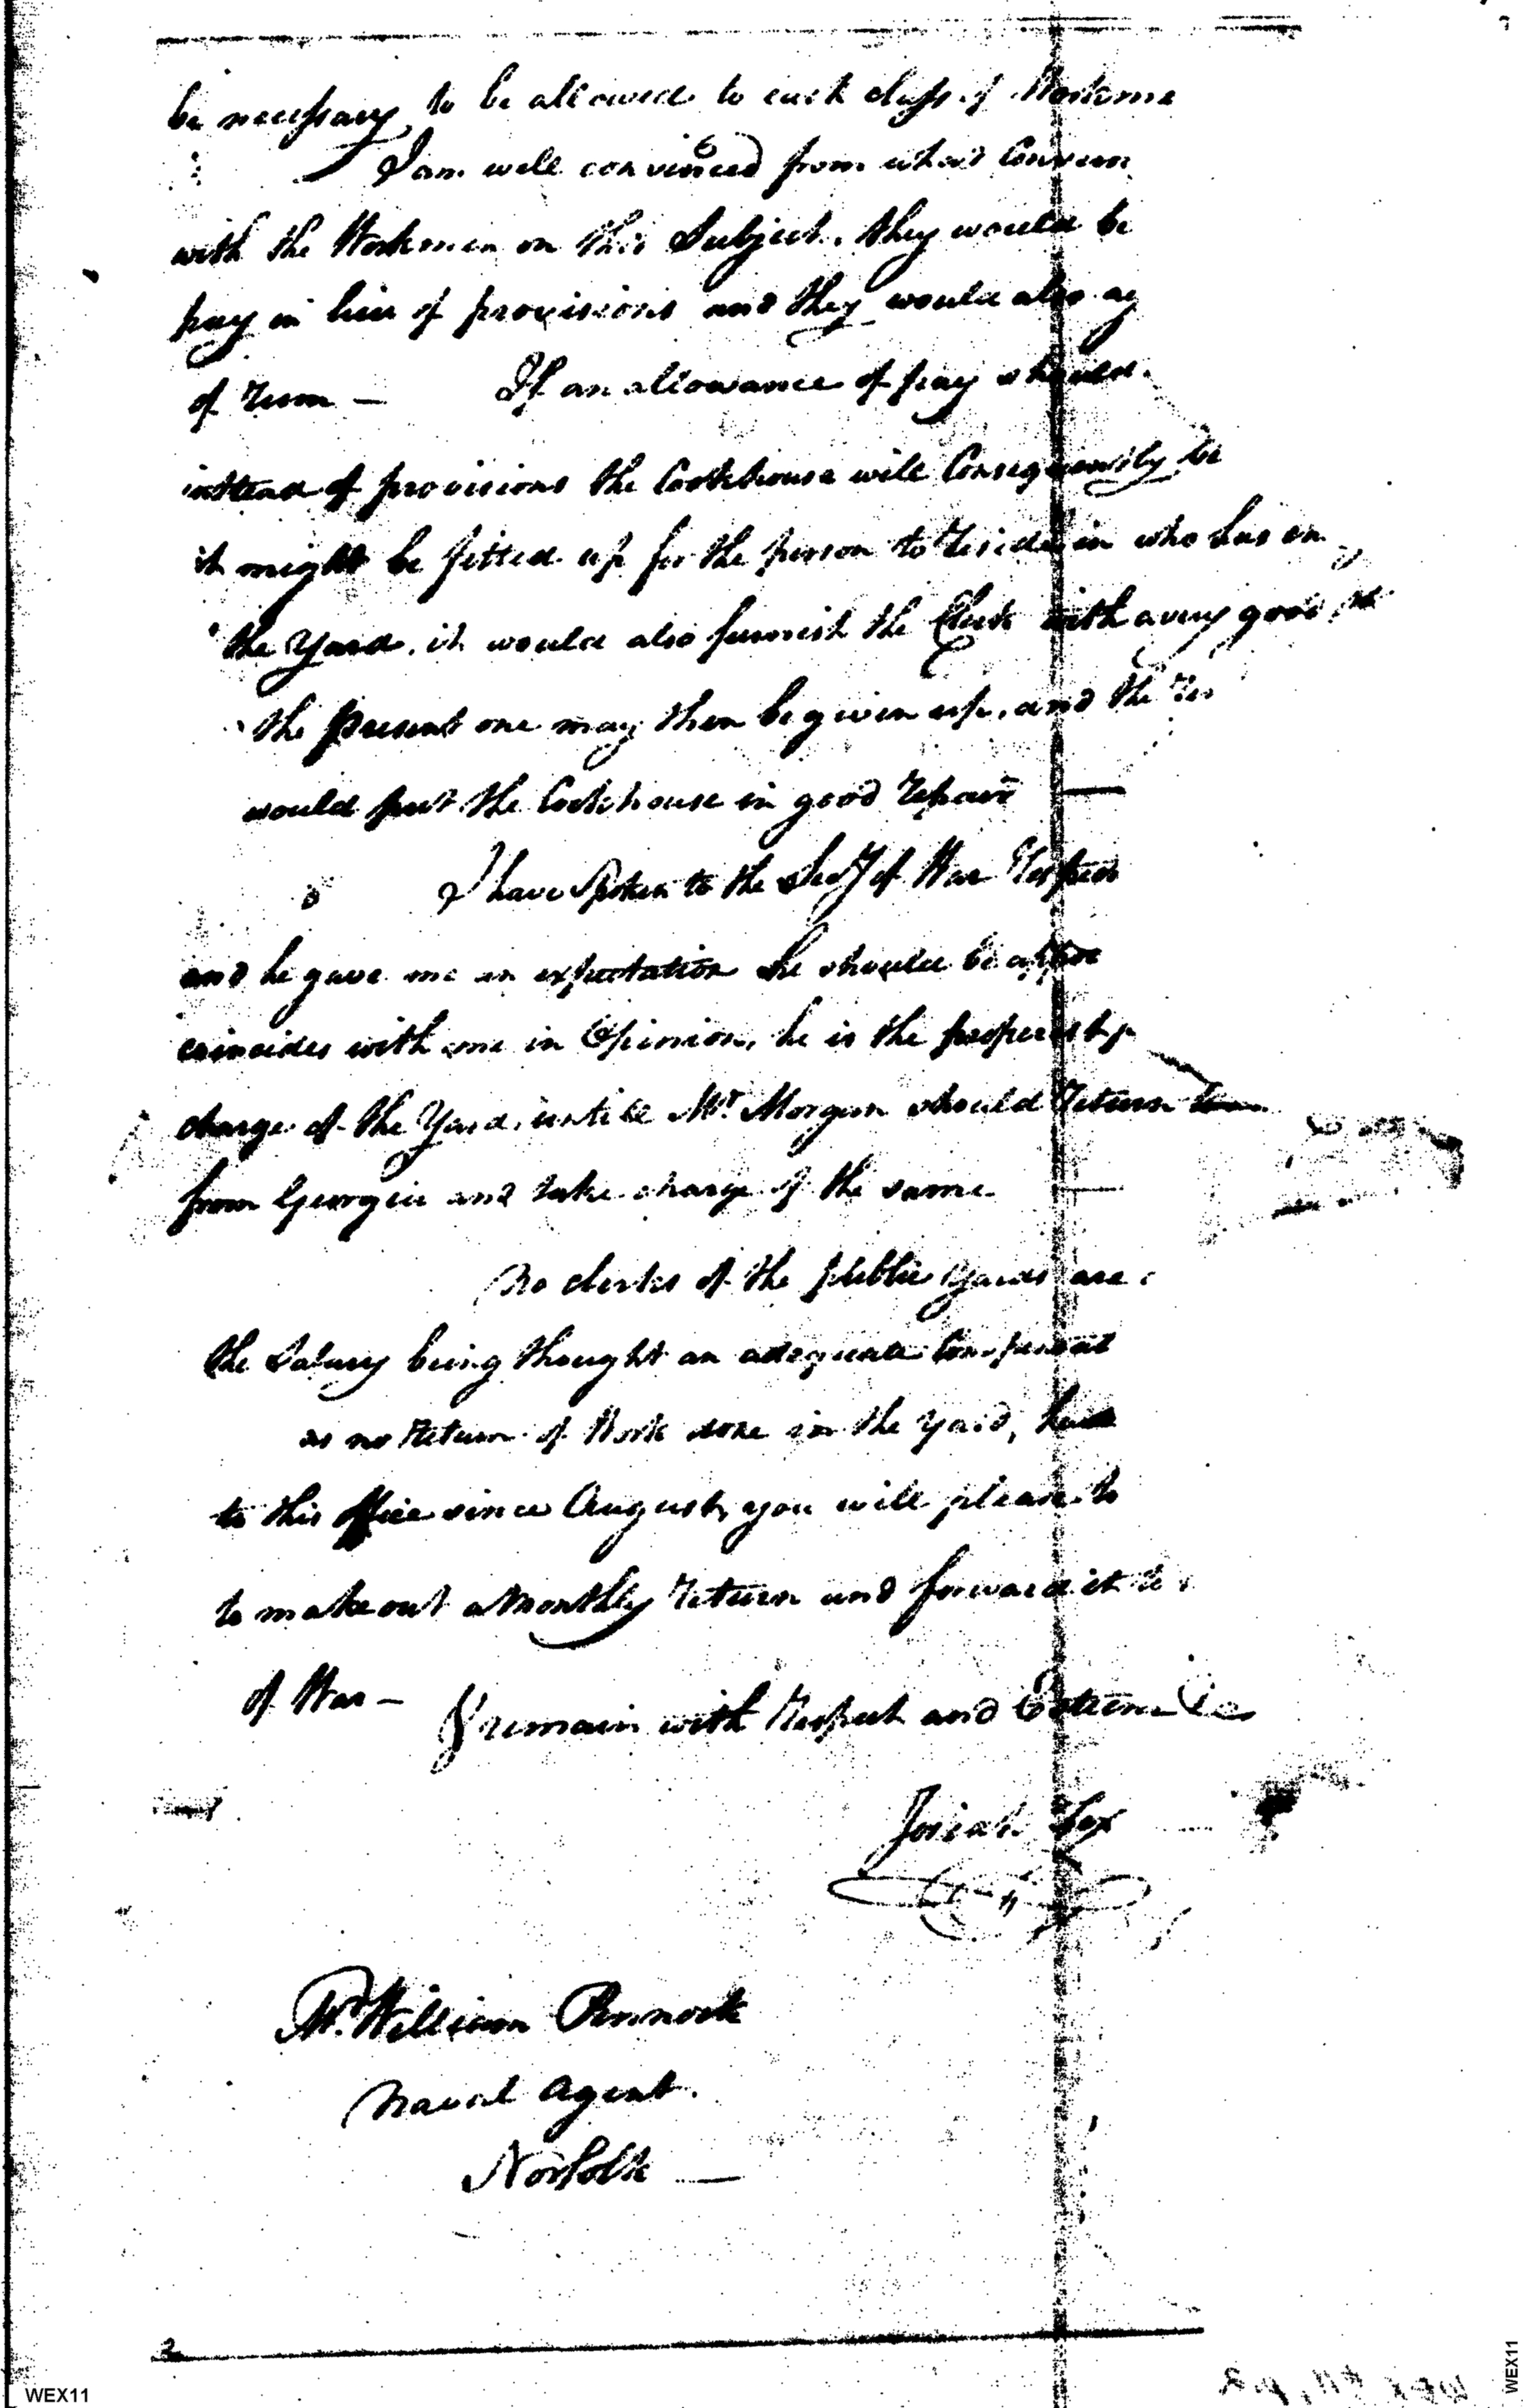 be necessary, to be allowed to each class of Workme
I am well convinced from what Convern
with the Workmen on this Subject, they would be
pay in lieu of provisions and they would also ag
of rum — If an allowance of pay should
instead of provisions the Cookhouse will Consequently be
it might be fitted up for the person to reside in who has
the Yard, it would also furnish the Clerk with a very good
the present one may then be given up, and the
would put the Cookhouse in good repair —
I have Spoken to the Secy of War
and he gave me an expectation he should be
coincides with me in Opinion, he is the
charge of the Yard, untill Mr. Morgan should return
from Georgia and take charge of the same —
No clerks of the public Yards are
the Salary being thought an adequate Compensat
as no return of Work done in the Yard,
to this Office since August, you will please to
to make out a Monthly return and forward it to
of War —
I remain with respect and Esteem &c
Josiah Fox
Mr. William Pennock
Naval Agent.
Norfolk —
2
WEX11
WEX11